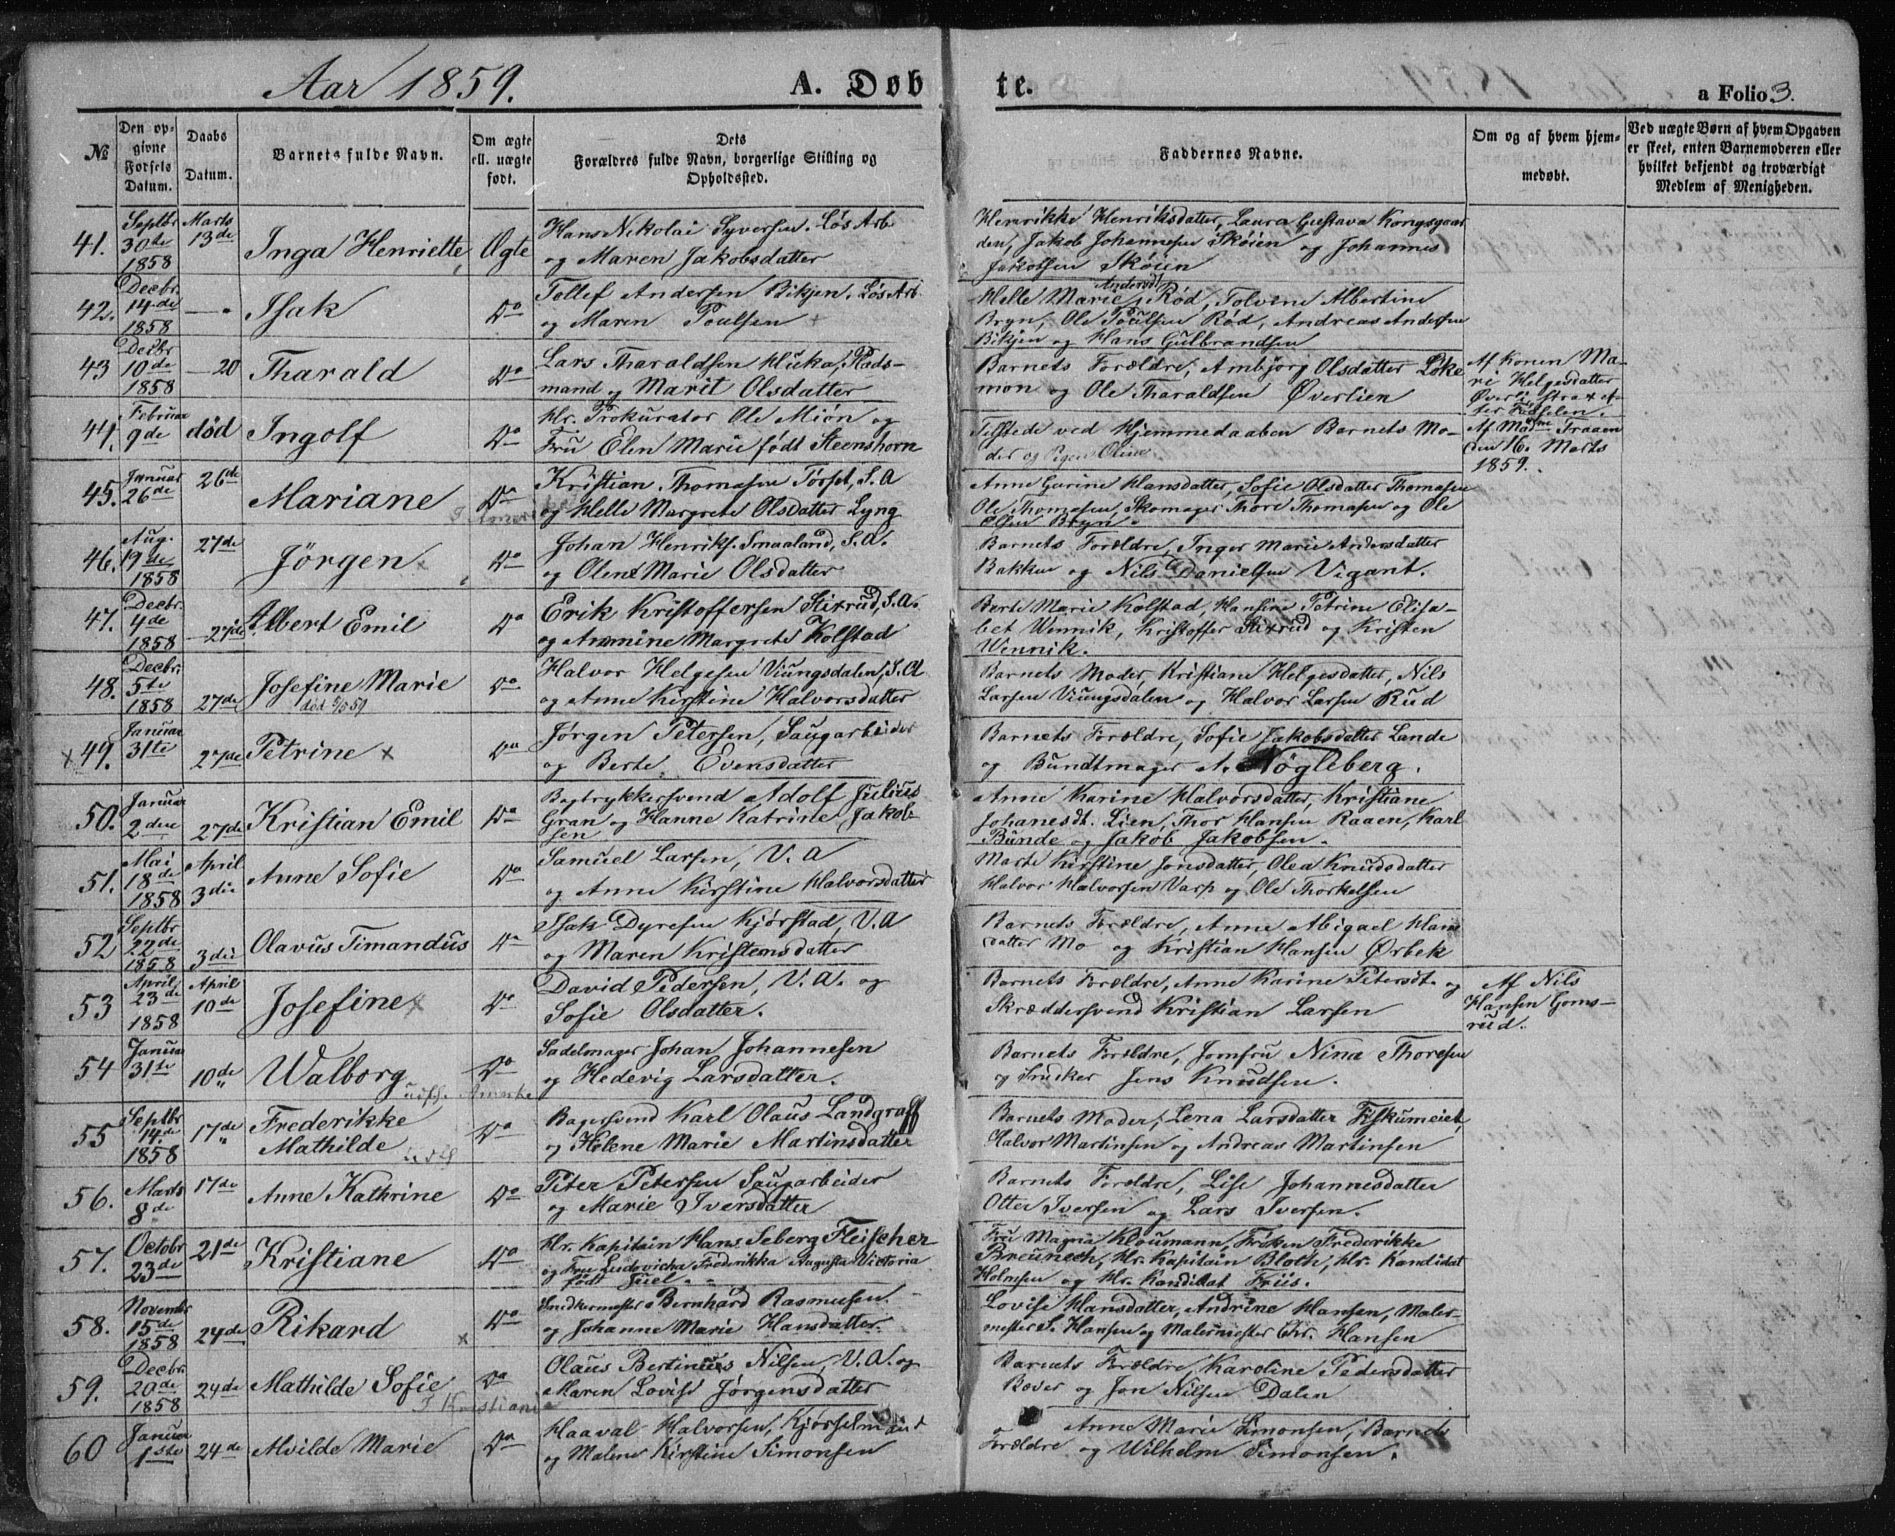 Aar 1859.
A. Døbte.
a Folio 3.
№
Den opgivne Fødsels Datum.
Daabs Datum.
Barnets fulde Navn.
Om ægte ell. uægte født.
Dets Forældres fulde Navn, borgerlige Stilling og Opholdssted.
Faddernes Navne.
Om og af hvem hjemmedøbt.
Ved uægte Børn af hvem Opgaven er skeet, enten Barnemoderen eller hvilket bekjendt og troværdigt Medlem af Menigheden.
41. Septbr 30te 1858 Marts 13de Inga Henriette Ægte
Hans Nikolai Syversen. Løs Arb
og Maren Jakobsdatter
Henrikke Henriksdatter, Laura Gustava Kongsgaar
den, Jakob Johannesen Skøien og Johannes
Jakobsen Skøien
42. Decbr. 14de 1858 — " Isak Do
Tollef Andersen Bikjen. Løs Arb
og Maren Poulsen
Helle Marie Andersdt Rød, Tolvine Albertine
Bryn, Ole Poulsen Rød, Andreas Andersen
Bikjen og Hans Gulbrandsen
43 Decbr 10de 1858 — 20 Tharald Do
Lars Tharaldsen Huka, Plads-
mand og Marit Olsdatter
Barnets Forældre, Ambjørg Olsdatter Løke
mon og Ole Tharaldsen Øverlien
Af Konen Ma-
ri Helgesdatter
Øverli strax ef-
ter Fødselen.
44. Februar 9de død Ingolf Do
Hr. Prokurator Ole Miøn og
Fru Elen Marie født Steenshorn
Tilstede ved Hjemmedaaben Barnets Mo-
der og Pigen Oline
Af Madme Traaen
den 16. Marts
1859.
45. Januar 26de 26de Mariane Do
Kristian Thomasen Torset, S. A
og Helle Margrete Olsdatter Lyng
Anne Gurine Hansdatter, Sofie Olsdatter Thomasen
Ole Thomasen, Skomager Thore Thomasen og Ole
Olsen Bryn.
46. Aug. 19de 1858 27de Jörgen Do
Johan Henriks. Smaaland, S. A.
og Olene Marie Olsdatter
Barnets Forældre, Inger Marie Andersdatter
Bakken og Nils Danielsen Vigant.
47. Decbr. 4de 1858 — 27de Albert Emil Do
Erik Kristoffersen Stixrud, S. A.
og Anmine Margrete Kolstad
Berte Marie Kolstad, Hansine Petrine Elisa-
bet Wennik, Kristoffer Stixrud og Kristen
Wennik.
48. Decbr. 5te 1858 27de Josefine Marie Do
Halvor Helgesen Viungsdalen, S. A
og Anne Kirstine Halvorsdatter
Barnets Moder, Kristiane Helgesdatter, Nils
Larsen Viungsdalen og Halvor Larsen Rud
49. Januar 31te 27de Petrine Do
Jørgen Petersen, Saugarbeider
og Berte Evensdatter
Barnets Forældre, Sofie Jakobsdatter Lande
og Bundtmager A. Nøgleberg.
50. Januar 2den 27de Kristian Emil Do
Bogtrykkersvend Adolf Julius
Gran og Hanne Katrine Jakob-
sen
Anne Karine Halvorsdatter, Kristiane
Johanesdt. Lien, Thor Hansen Raaen, Karl
Bunde og Jakob Jakobsen.
51. Mai 18de 1858 April 3die Anne Sofie Do
Samuel Larsen, V. A
og Anne Kirstine Halvorsdatter
Marte Kirstine Jonsdatter, Olea Knudsdatter
Halvor Halvorsen Varp og Ole Thorkelsen
52 Septbr 22de 1858 3die Olavus Timandus Do
Isak Dyresen Kjørstad, V. A
og Maren Kristensdatter
Barnets Forældre, Anne Abigael Hans
datter Mo og Kristian Hansen Ørbek
53 April 23de 1858 April 10de Josefine Do
David Pedersen, V. A. og
Sofie Olsdatter.
Barnets Forældre, Anne Karine Petersdt. og
Skræddersvend Kristian Larsen
Af Nils
Hansen Goms-
rud.
54 Januar 31te 10de Walborg Do
Sadelmager Johan Johannesen
og Hedevig Larsdatter.
Barnets Forældre, Jomfru Nina Thoresen
og Snedker Jens Knudsen.
55 Septbr 14de 1858 17de Frederikke Mathilde Do
Bagersvend Karl Olaus Landgraff
og Helene Marie Martinsdatter
Barnets Moder, Lena Larsdatter Fiskumeiet,
Halvor Martinsen og Andreas Martinsen
56. Marts 8de 17de Anne Kathrine Do
Peter Petersen Saugarbeider
og Marie Iversdatter
Barnets Forældre, Lise Johannesdatter
Otter Iversen og Lars Iversen.
57. Octobr 23de 21de Kristiane Do
Hr. Kapitain Hans Seberg Fleischer
og Fru Ludovicha Frederikka Augusta Victoria
født Juel.
Fru Magna Kloumann, Frøken Frederikke
Breunech, Hr. Kapitain Bloth, Hr. Kandidat
Holmsen og Hr. Kandidat Friis.
58. Novembr 15de 1858 24de Rikard Do
Snedkermester Bernhard Rasmusen.
og Johanne Marie Hansdatter
Lovise Hansdatter, Andrine Hansen, Maler-
mester S. Hansen og Malermester Chr. Hansen
59. Decbr. 20de 1858 24de Mathilde Sofie Do
Olaus Bertinius Nilsen, V. A. og
Maren Lovise Jørgensdatter
Barnets Forældre, Karoline Pedersdatter
Bøver og Jon Nilsen Dalen
60 Januar 1ste 24de Alvilde Marie Do
Haaval Halvorsen, Kjørselmand
og Malene Kirstine Simonsen
Anne Marie Simonsen, Barnets
Forældre og Wilhelm Simonsen.